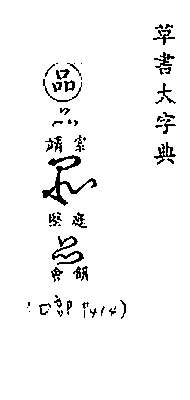 草書大字典
品
索靖
庭堅
(口部 P414)